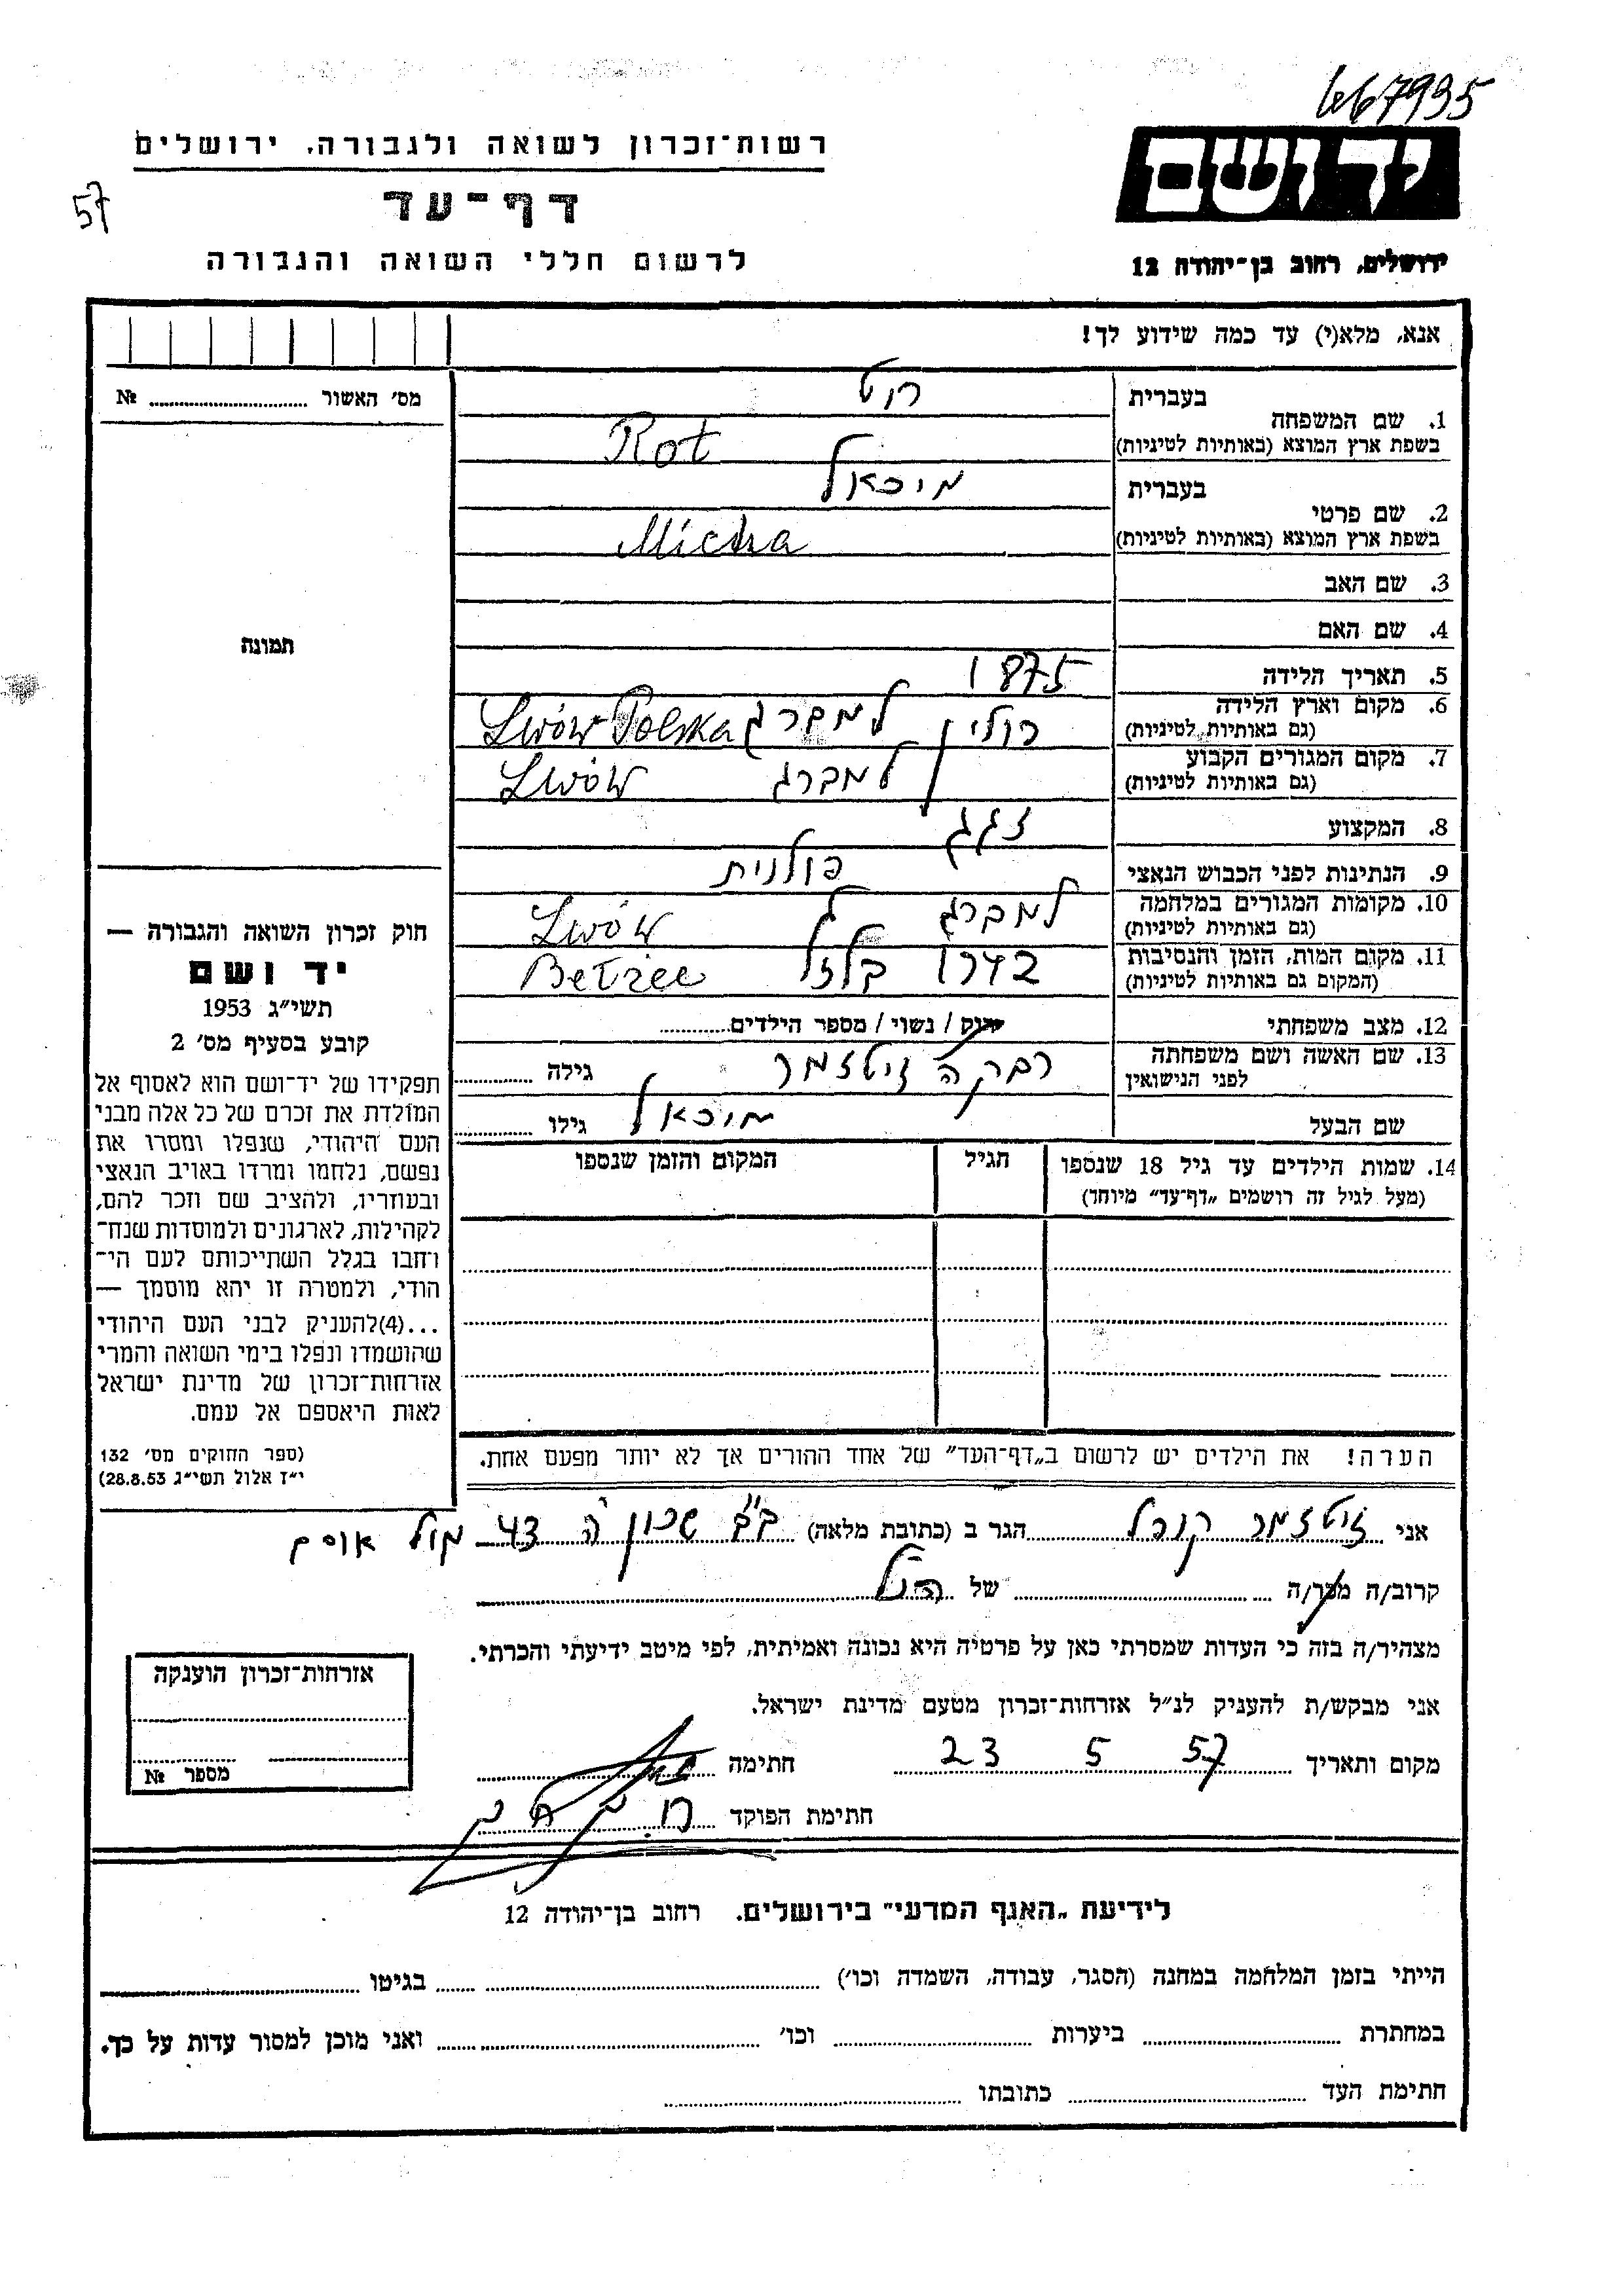 667935
רשות־זכרון לשואה ולגבורה. ירושלים
57
דף־עד
לרשום חללי השואה והגבורה
יד ושם
ירושלים, רחוב בן־יהודה 12
אנא, מלא(י) עד כמה שידוע לך!
מס׳ האשור № 
תמונה
1. שם המשפחה
בעברית רוט
בשפת ארץ המוצא (באותיות לטיניות) Rot
2. שם פרטי
בעברית מיכאל
בשפת ארץ המוצא (באותיות לטיניות) Micha
3. שם האב
4. שם האם
5. תאריך הלידה 1875
6. מקום וארץ הלידה פולין למברג Lwów Polska
(גם באותיות לטיניות)
7. מקום המגורים הקבוע למברג Lwów
(גם באותיות לטיניות)
8. המקצוע זגג
9. הנתינות לפני הכבוש הנאצי פולנית
10. מקומות המגורים במלחמה למברג Lwów
(גם באותיות לטיניות)
11. מקום המות, הזמן והנסיבות 1942 בלזץ
(המקום גם באותיות לטיניות)
12. מצב משפחתי רווק / נשוי / מספר הילדים
13. שם האשה ושם משפחתה רבקה זיטזמר גילה
לפני הנישואין
שם הבעל מיכאל גילו
14. שמות הילדים עד גיל 18 שנספו הגיל המקום והזמן שנספו
(מעל לגיל זה רושמים „דף־עד״ מיוחד)
הערה! את הילדים יש לרשום ב„דף־העד״ של אחד ההורים אך לא יותר מפעם אחת.
חוק זכרון השואה והגבורה —
יד ושם
תשי״ג 1953
קובע בסעיף מס׳ 2
תפקידו של יד־ושם הוא לאסוף אל
המולדת את זכרם של כל אלה מבני
העם היהודי, שנפלו ומסרו את
נפשם, נלחמו ומרדו באויב הנאצי
ובעוזריו, ולהציב שם וזכר להם,
לקהילות, לארגונים ולמוסדות שנח־
רחבו בגלל השתייכותם לעם הי־
הודי, ולמטרה זו יהא מוסמך —
...(4)להעניק לבני העם היהודי
שהושמדו ונפלו בימי השואה והמרי
אזרחות־זכרון של מדינת ישראל
לאות היאספם אל עמם.
(ספר החוקים מס׳ 132
י״ז אלול תשי״ג 28.8.53)
אני זיטזמר הגר ב (כתובת מלאה) ב״ב שכון ה 43 מול אוסם
קרוב/ה מכר/ה של הנ״ל
מצהיר/ה בזה כי העדות שמסרתי כאן על פרטיה היא נכונה ואמיתית, לפי מיטב ידיעתי והכרתי.
אני מבקש/ת להעניק לנ״ל אזרחות־זכרון מטעם מדינת ישראל.
מקום ותאריך 23 5 57 חתימה
חתימת הפוקד
אזרחות־זכרון הוענקה
מספר №
לידיעת „האגף המדעי״ בירושלים. רחוב בן־יהודה 12
הייתי בזמן המלחמה במחנה (הסגר, עבודה, השמדה וכו׳) בגיטו
במחתרת ביערות וכו׳ ואני מוכן למסור עדות על כך.
חתימת העד כתובתו